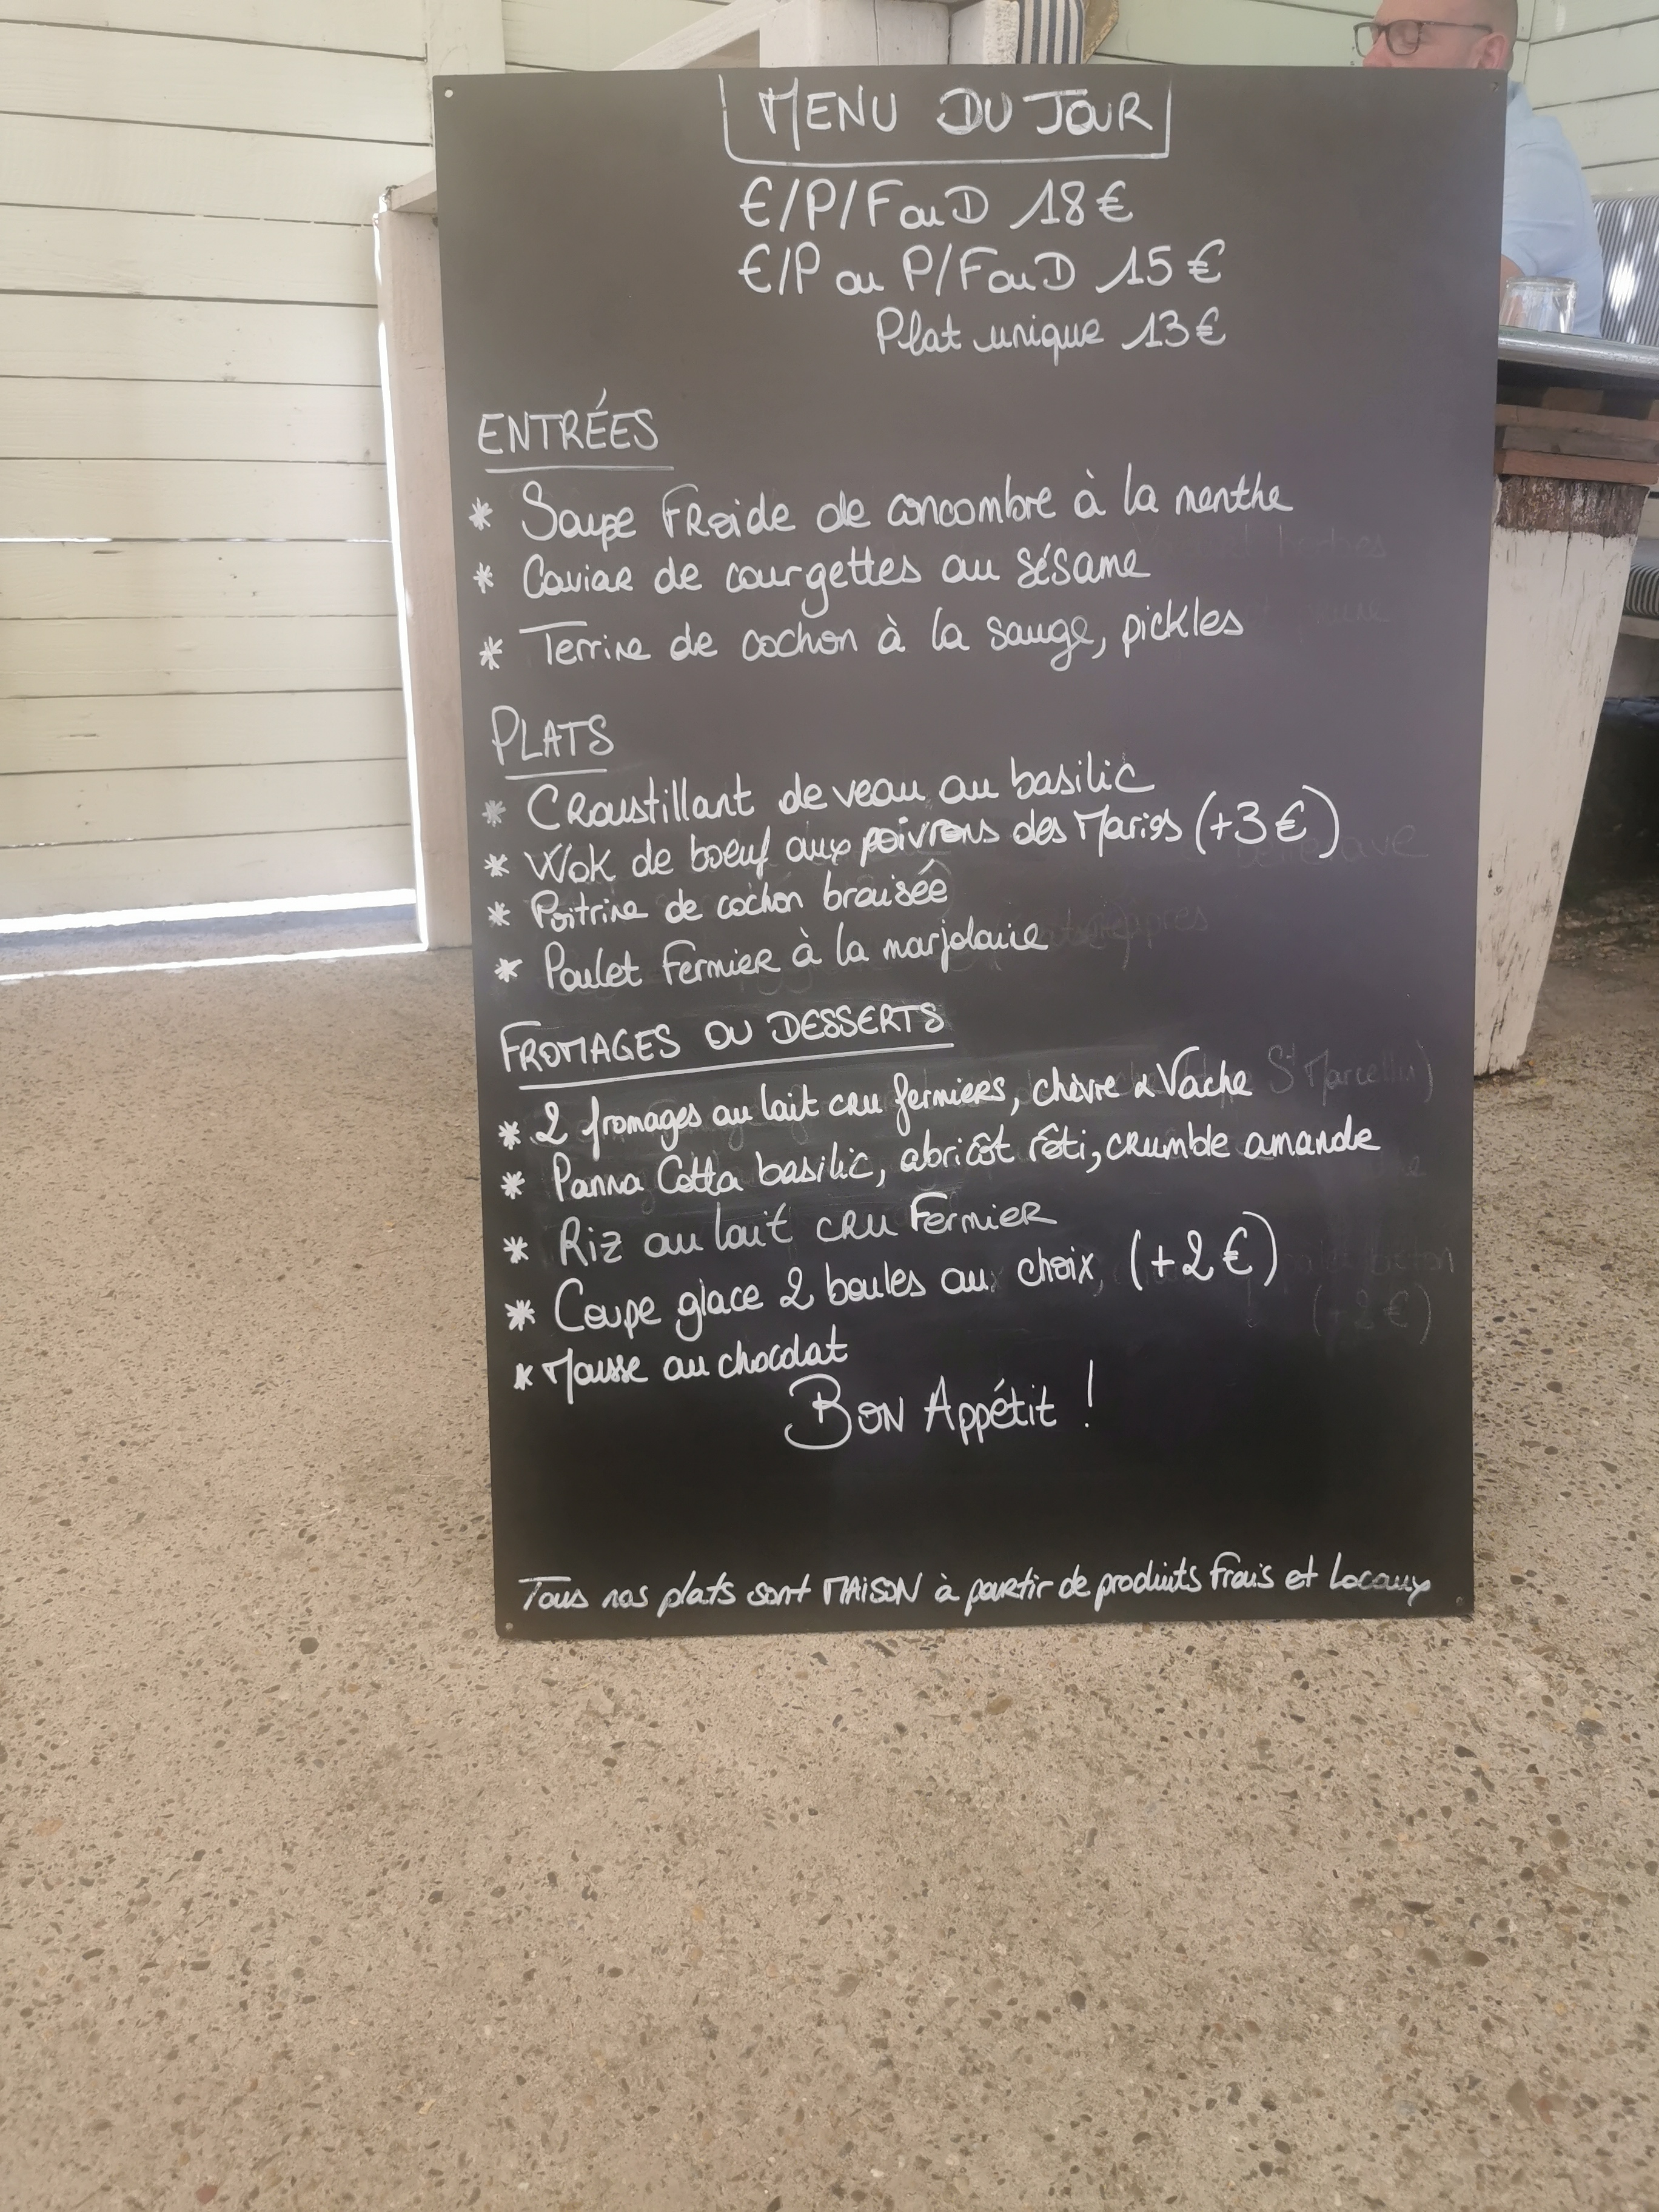 MENU DU JOUR
€/P/F ou D 18€
€/P ou P/F ou D 15€
Plat unique 13€
ENTRÉES
* Soupe Froide de concombre à la menthe
* Caviar de courgettes au sésame
* Terrine de cochon à la sauge, pickles
PLATS
* Croustillant de veau au basilic
* Wok de boeuf aux poivrons des Maries (+3€)
* Poitrine de cochon braisée
* Poulet Fermier à la marjolaine
FROMAGES OU DESSERTS
* 2 fromages au lait cru fermiers, chèvre & Vache
* Panna Cotta basilic, abricôt rôti, crumble amande
* Riz au lait cru Fermier
* Coupe glace 2 boules au choix, (+2€)
* Mousse au chocolat
BON Appétit !
Tous nos plats sont MAISON à partir de produits frais et Locaux